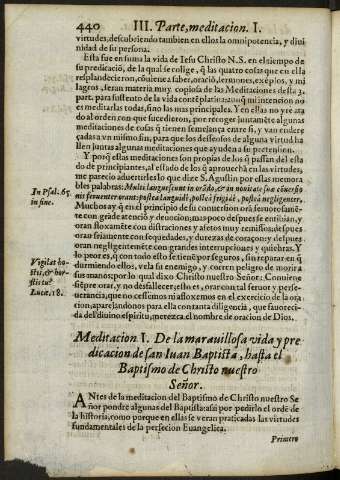 440 III. Parte, meditacion. I.
virtudes, descubriendo tambien en ellos la omnipotencia, y divi
nidad de su persona.
Esta fue en suma la vida de Iesu Christo N.S. en el tiempo de
su predicació, de la qual se colige, q̃ las quatro cosas que en ella
resplandecieron, cõviene a saber, oració, sermones, exẽplos, y mi
lagros, seran materia muy copiosa de las Meditaciones desta 3.
part. para sustento de la vida contẽplativa: aunq̃ mi intencion no
es meditarlas todas, sino las mas principales. Y en estas no yre ata
do al orden con que sucedieron, por recoger juntamẽte algunas
meditaciones de cosas q̃ tienen semejança entre si, y van endere
çadas a vn mismo fin, para que los desseosos de alguna virtud ha
llen juntas algunas meditaciones que ayuden a su pretension.
Y porq̃ estas meditaciones son propias de los q̃ passan del esta
do de principiantes, al estado de los q̃ aprovechã en las virtudes,
me parecio advertirles lo que dize S. Agustin por estas memora
bles palabras: Multi languescunt in orãdo, & in novitate suæ cõversio
In Psal. 65 nis ferventer orant: postea languidè, postea frigidè, postea negligenter.
in fine. Muchos ay q̃ en el principio de su conversion orã fervorosamẽ-
te con grãde atenció y devocion; mas poco despues se entibian, y
oran floxamẽte con distracions y afetos muy remissos; despues
oran friamente con sequedades, y durezas de coraçon: y despues
oran negligentemẽte con grandes interrupciones y quiebras. Y
lo peor es, q̃ con todo esto se tienẽ por seguros, sin reparar en q̃
Vigilat ho- durmiendo ellos, vela su enemigo, y corren peligro de morir a
stis, & dor- sus manos; por lo qual dixo Christo nuestro Señor: Conviene
mis tu? siẽpre orar, y no desfallecer; esto es, orar con tal fervor y perse-
Lucæ. 18. verancia, que no cessemos ni afloxemos en el exercicio de la ora
cion, aparejandonos para ella con tanta diligencia, que favoreci-
da del divino espiritu, merezca el nombre de oracion de Dios.
Meditacion I. De la maravillosa vida y pre
dicacion de san Iuan Baptista, hasta el
Baptismo de Christo nuestro
Señor.
ANtes de la meditacion del Baptismo de Christo nuestro Se
ñor pondre algunas del Baptista: asi por pedirlo el ordẽ de
la historia, como porque en ellas se veran praticadas las virtudes
fundamentales de la perfecion Euangelica.
Primero